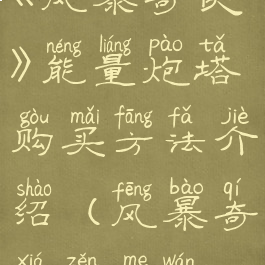 》 néng liáng pào tǎ
能量炮塔
gòu mǎi fāng fǎ jiè
购买方法介
shào ( fēng bào qí
绍（风暴奇
xiá zěn me wán